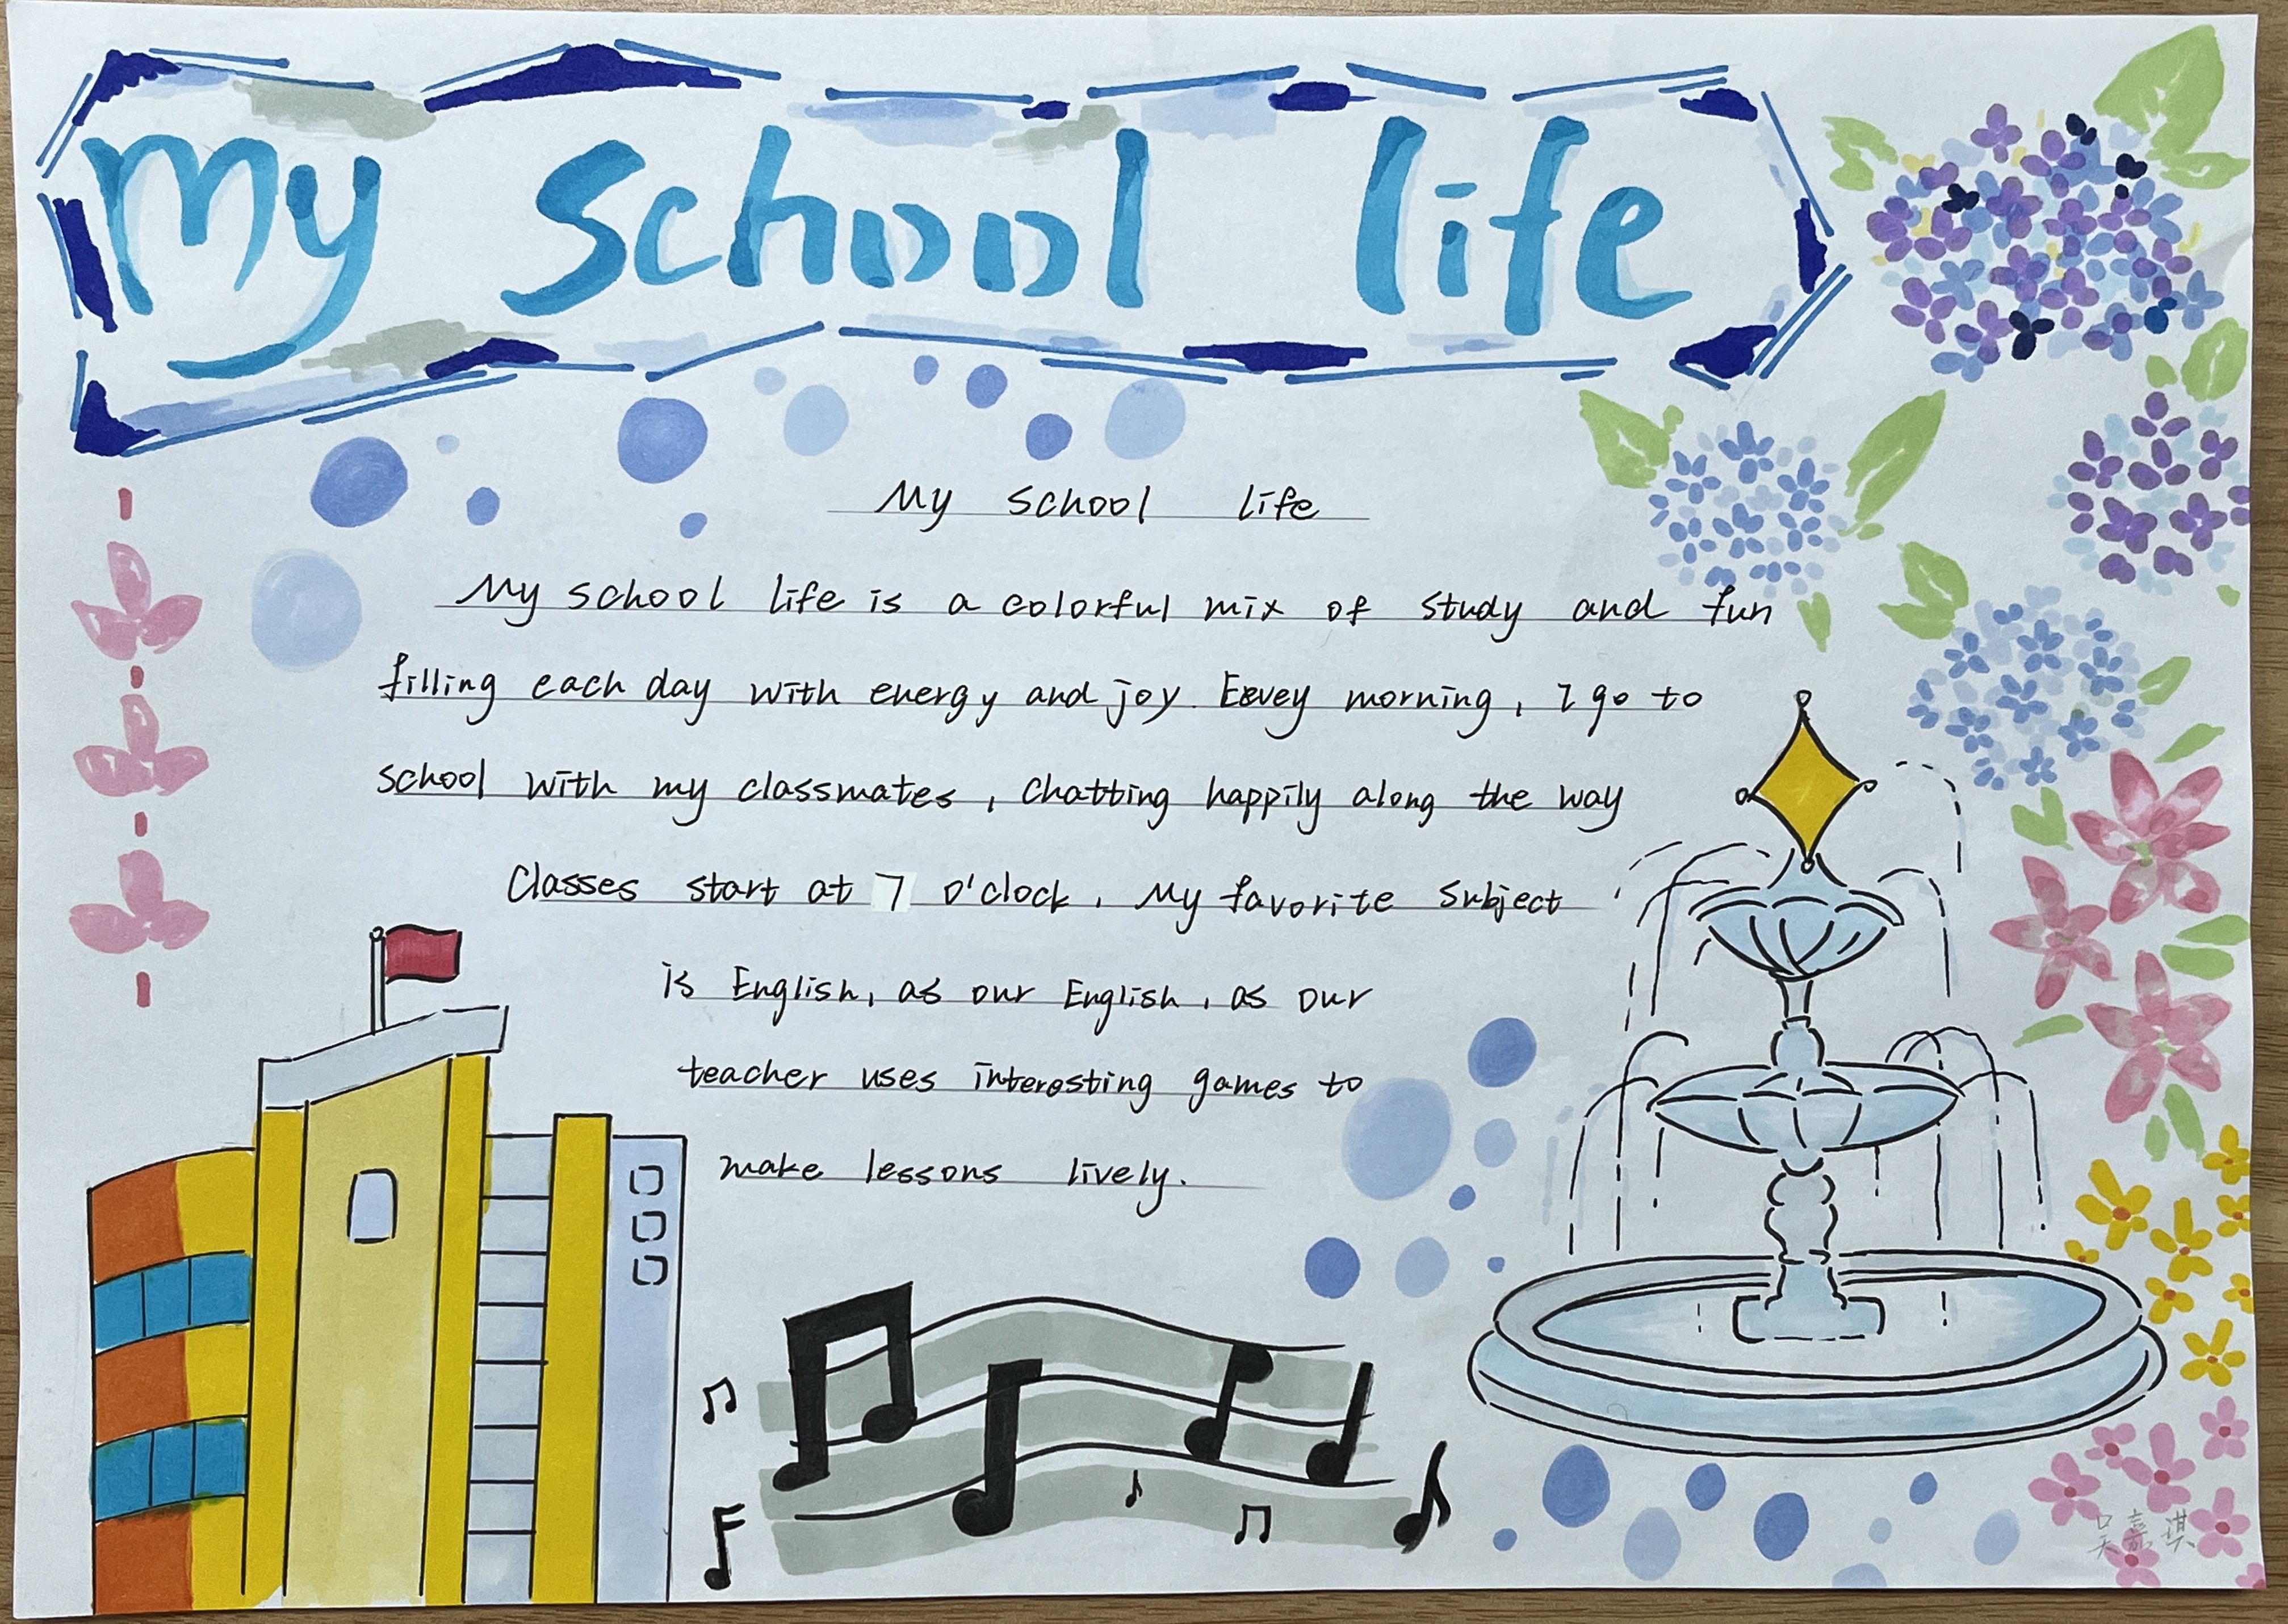 My School life
My school life
My school life is a colorful mix of study and fun
filling each day with energy and joy. Eevey morning, I go to
school with my classmates, chatting happily along the way
Classes start at 7 o'clock. My favorite subject
is English, as our English, as our
teacher uses interesting games to
make lessons lively.
吴嘉琪